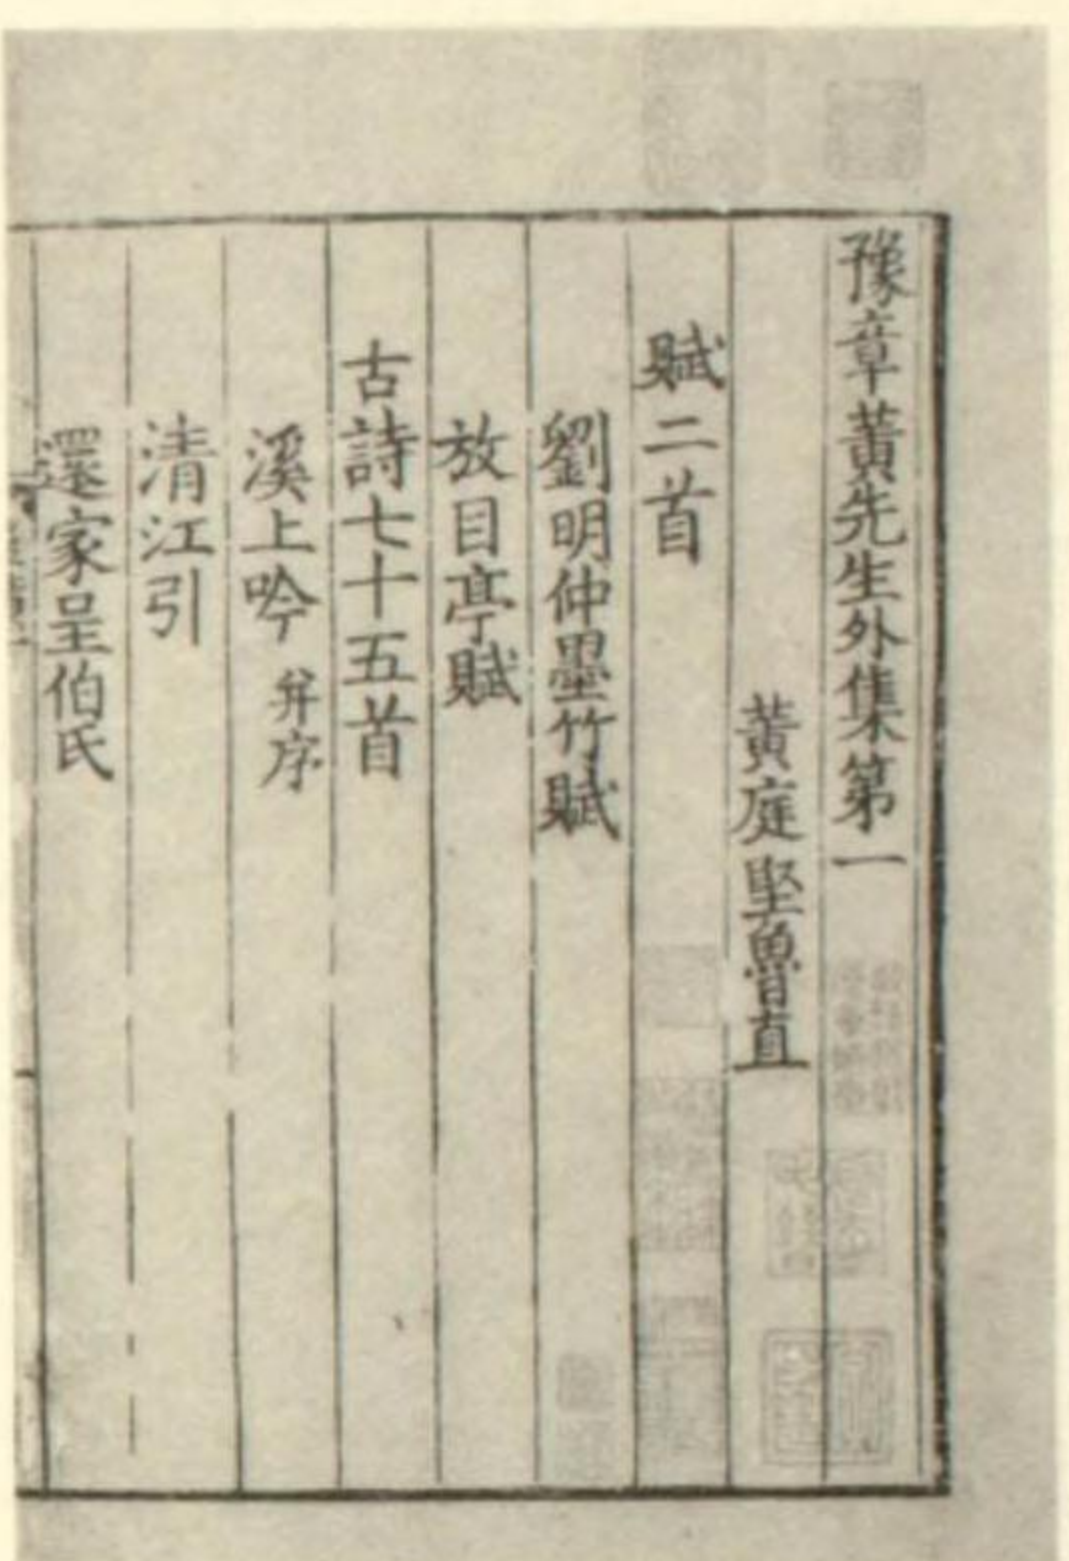 豫章黃先生外集第一
黃庭堅魯直
賦二首
劉明仲墨竹賦
放目亭賦
古詩七十五首
溪上吟 并序
清江引
還家呈伯氏